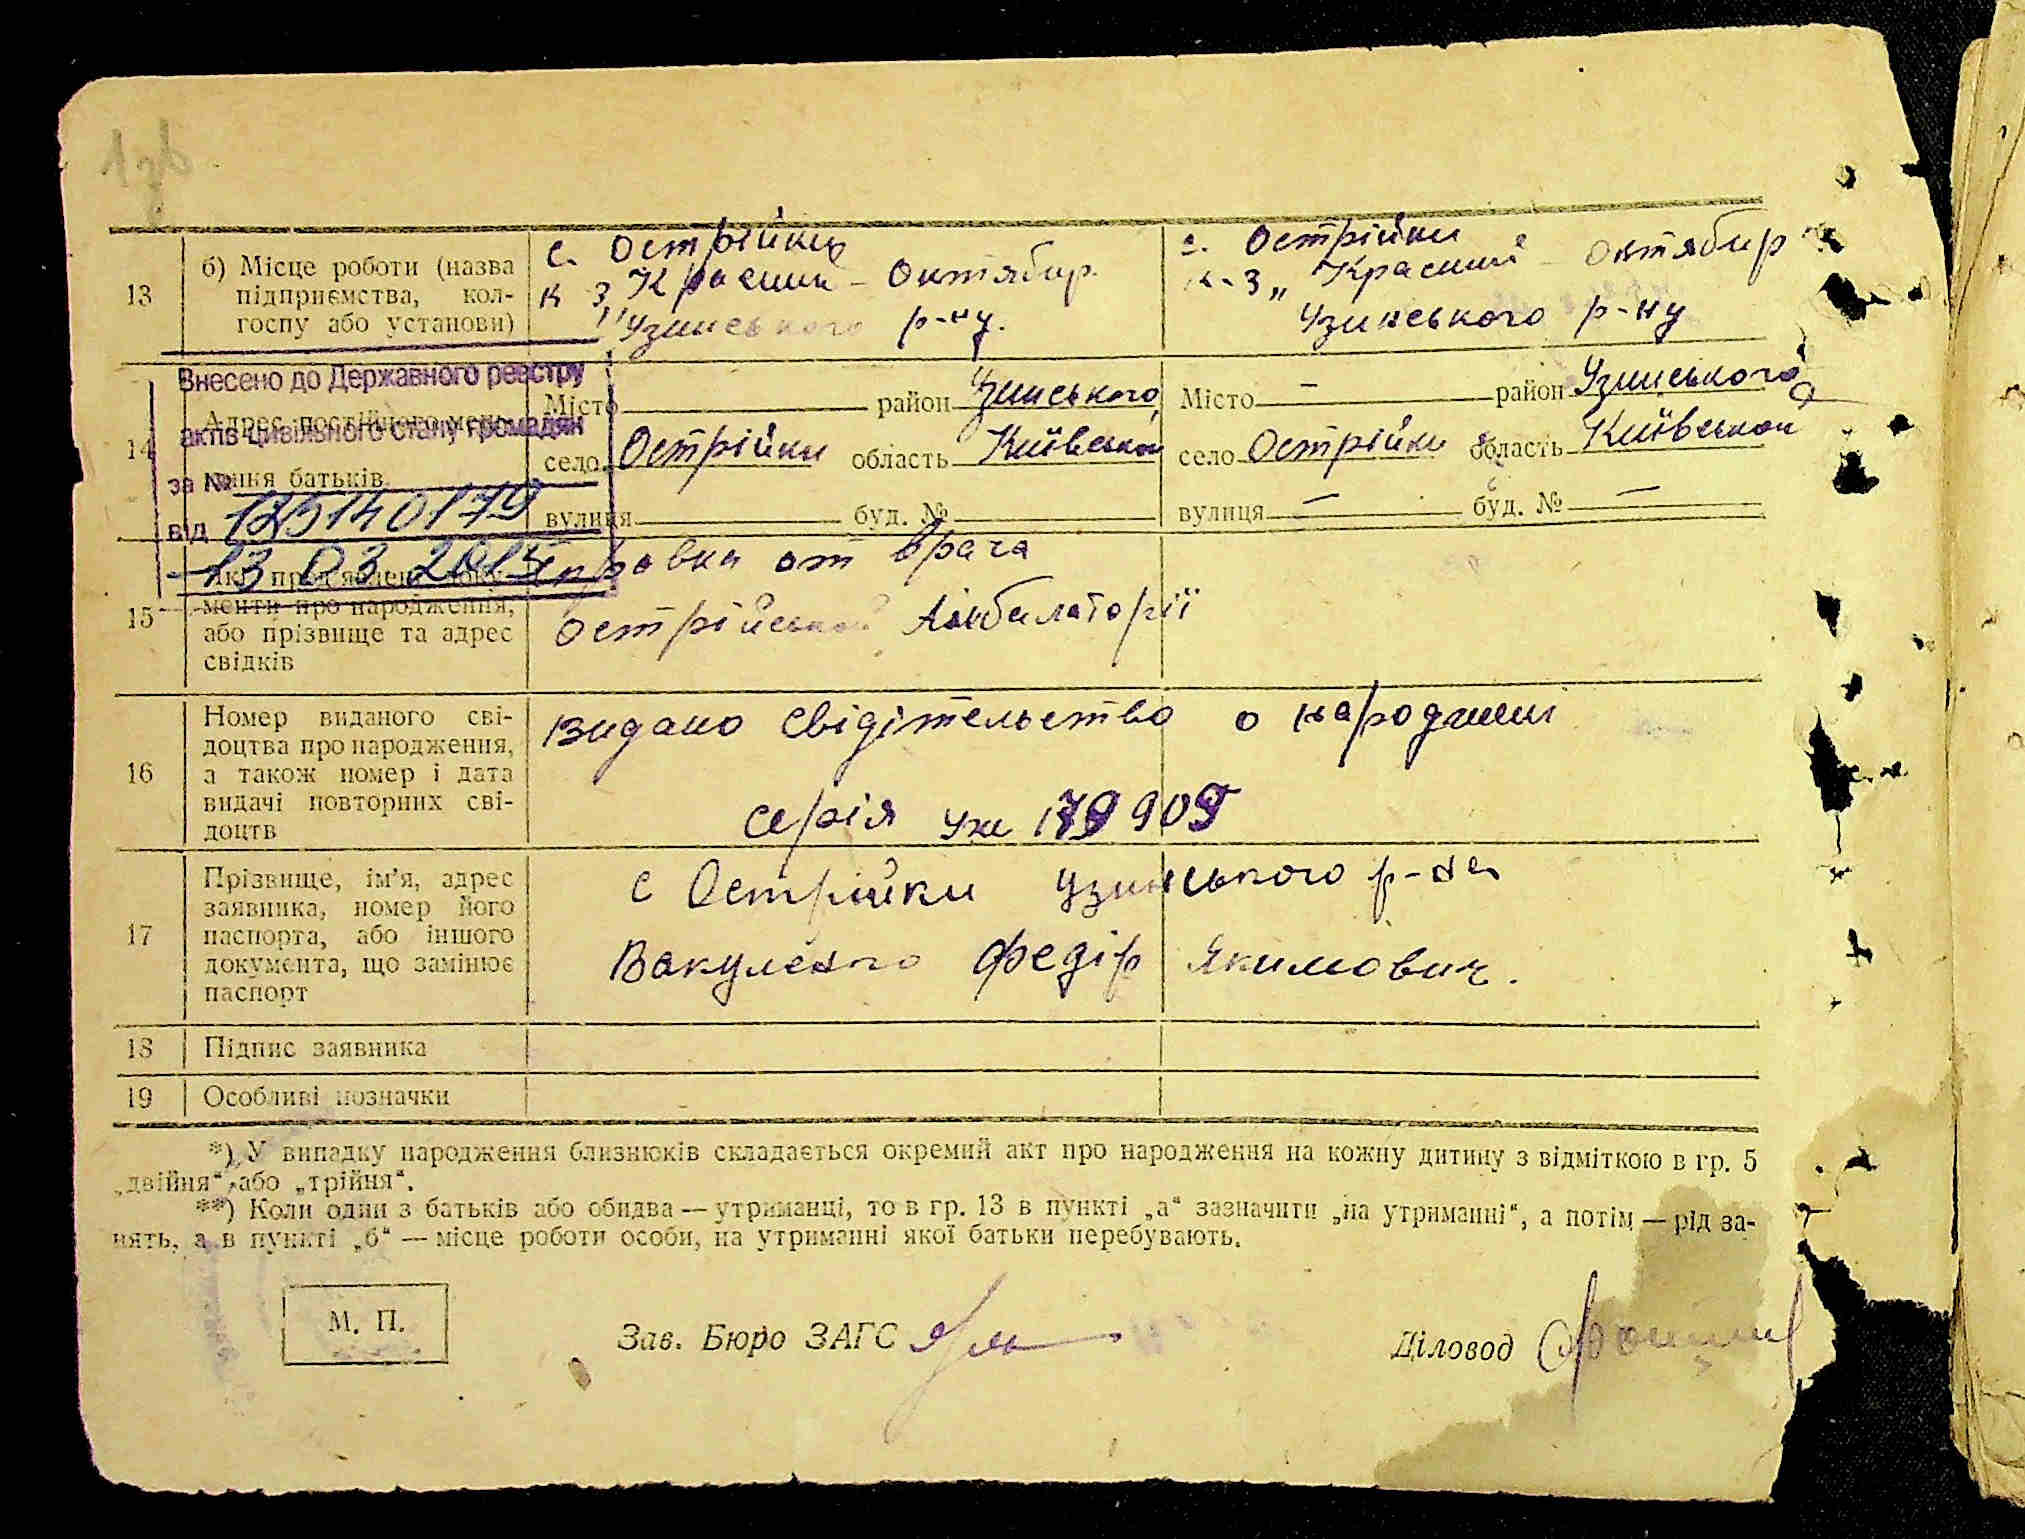 13
б) Місце роботи (назва
підприємства, кол-
госпу або установи)
с. Острійки
к з „Красний – Октябир
Узинського р-ну.
с. Острійки
к-з „Красний – Октябир
Узинського р-ну
14
Адрес постійного меш-
кання батьків
Внесено до Державного реєстру
актів цивільного стану громадян
за №
125140179
від
13 03 201
Місто район Узинського
село Острійки область Київської
вулиця буд. №
Місто – район Узинського
село Острійки область Київської
вулиця – буд. № –
15
Які пред'явлені доку-
менти про народження,
або прізвище та адрес
свідків
Справка от врача
Острійської Амбулаторії
16
Номер виданого сві-
доцтва про народження,
а також номер і дата
видачі повторних сві-
доцтв
видано свідітельство о народженні
серія уж 179909
17
Прізвище, ім'я, адрес
заявника, номер його
паспорта, або іншого
документа, що замінює
паспорт
с Острійки Узинського р-на
Вакуленко Федір Якимович.
18
Підпис заявника
19
Особливі позначки
*) У випадку народження близнюків складається окремий акт про народження на кожну дитину з відміткою в гр. 5
„двійня“, або „трійня“.
**) Коли один з батьків або обидва — утриманці, то в гр. 13 в пункті „а“ зазначити „на утриманні“, а потім — рід за-
нять, а в пункті „б“ — місце роботи особи, на утриманні якої батьки перебувають.
М. П.
Зав. Бюро ЗАГС
Діловод